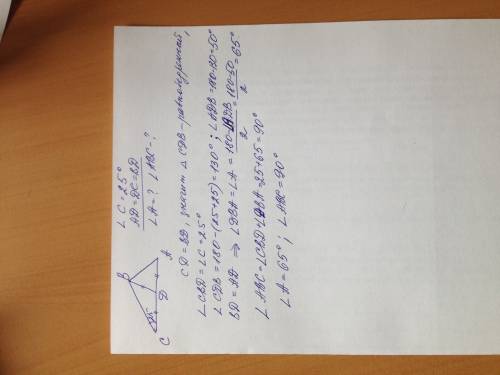 B
25°
C
D
A
∠C = 25°
AD = DC = BD
∠A = ? ∠ABC = ?
CD = BD, значит △CDB – равнобедренный,
∠CBD = ∠C = 25°
∠CDB = 180 – (25+25) = 130°; ∠ADB = 180-130 = 50°
BD = AD ⇒ ∠DBA = ∠A = 180-∠ADB / 2 = 180-50 / 2 = 65°
∠ABC = ∠CBD + ∠DBA = 25+65 = 90°
∠A = 65°; ∠ABC = 90°